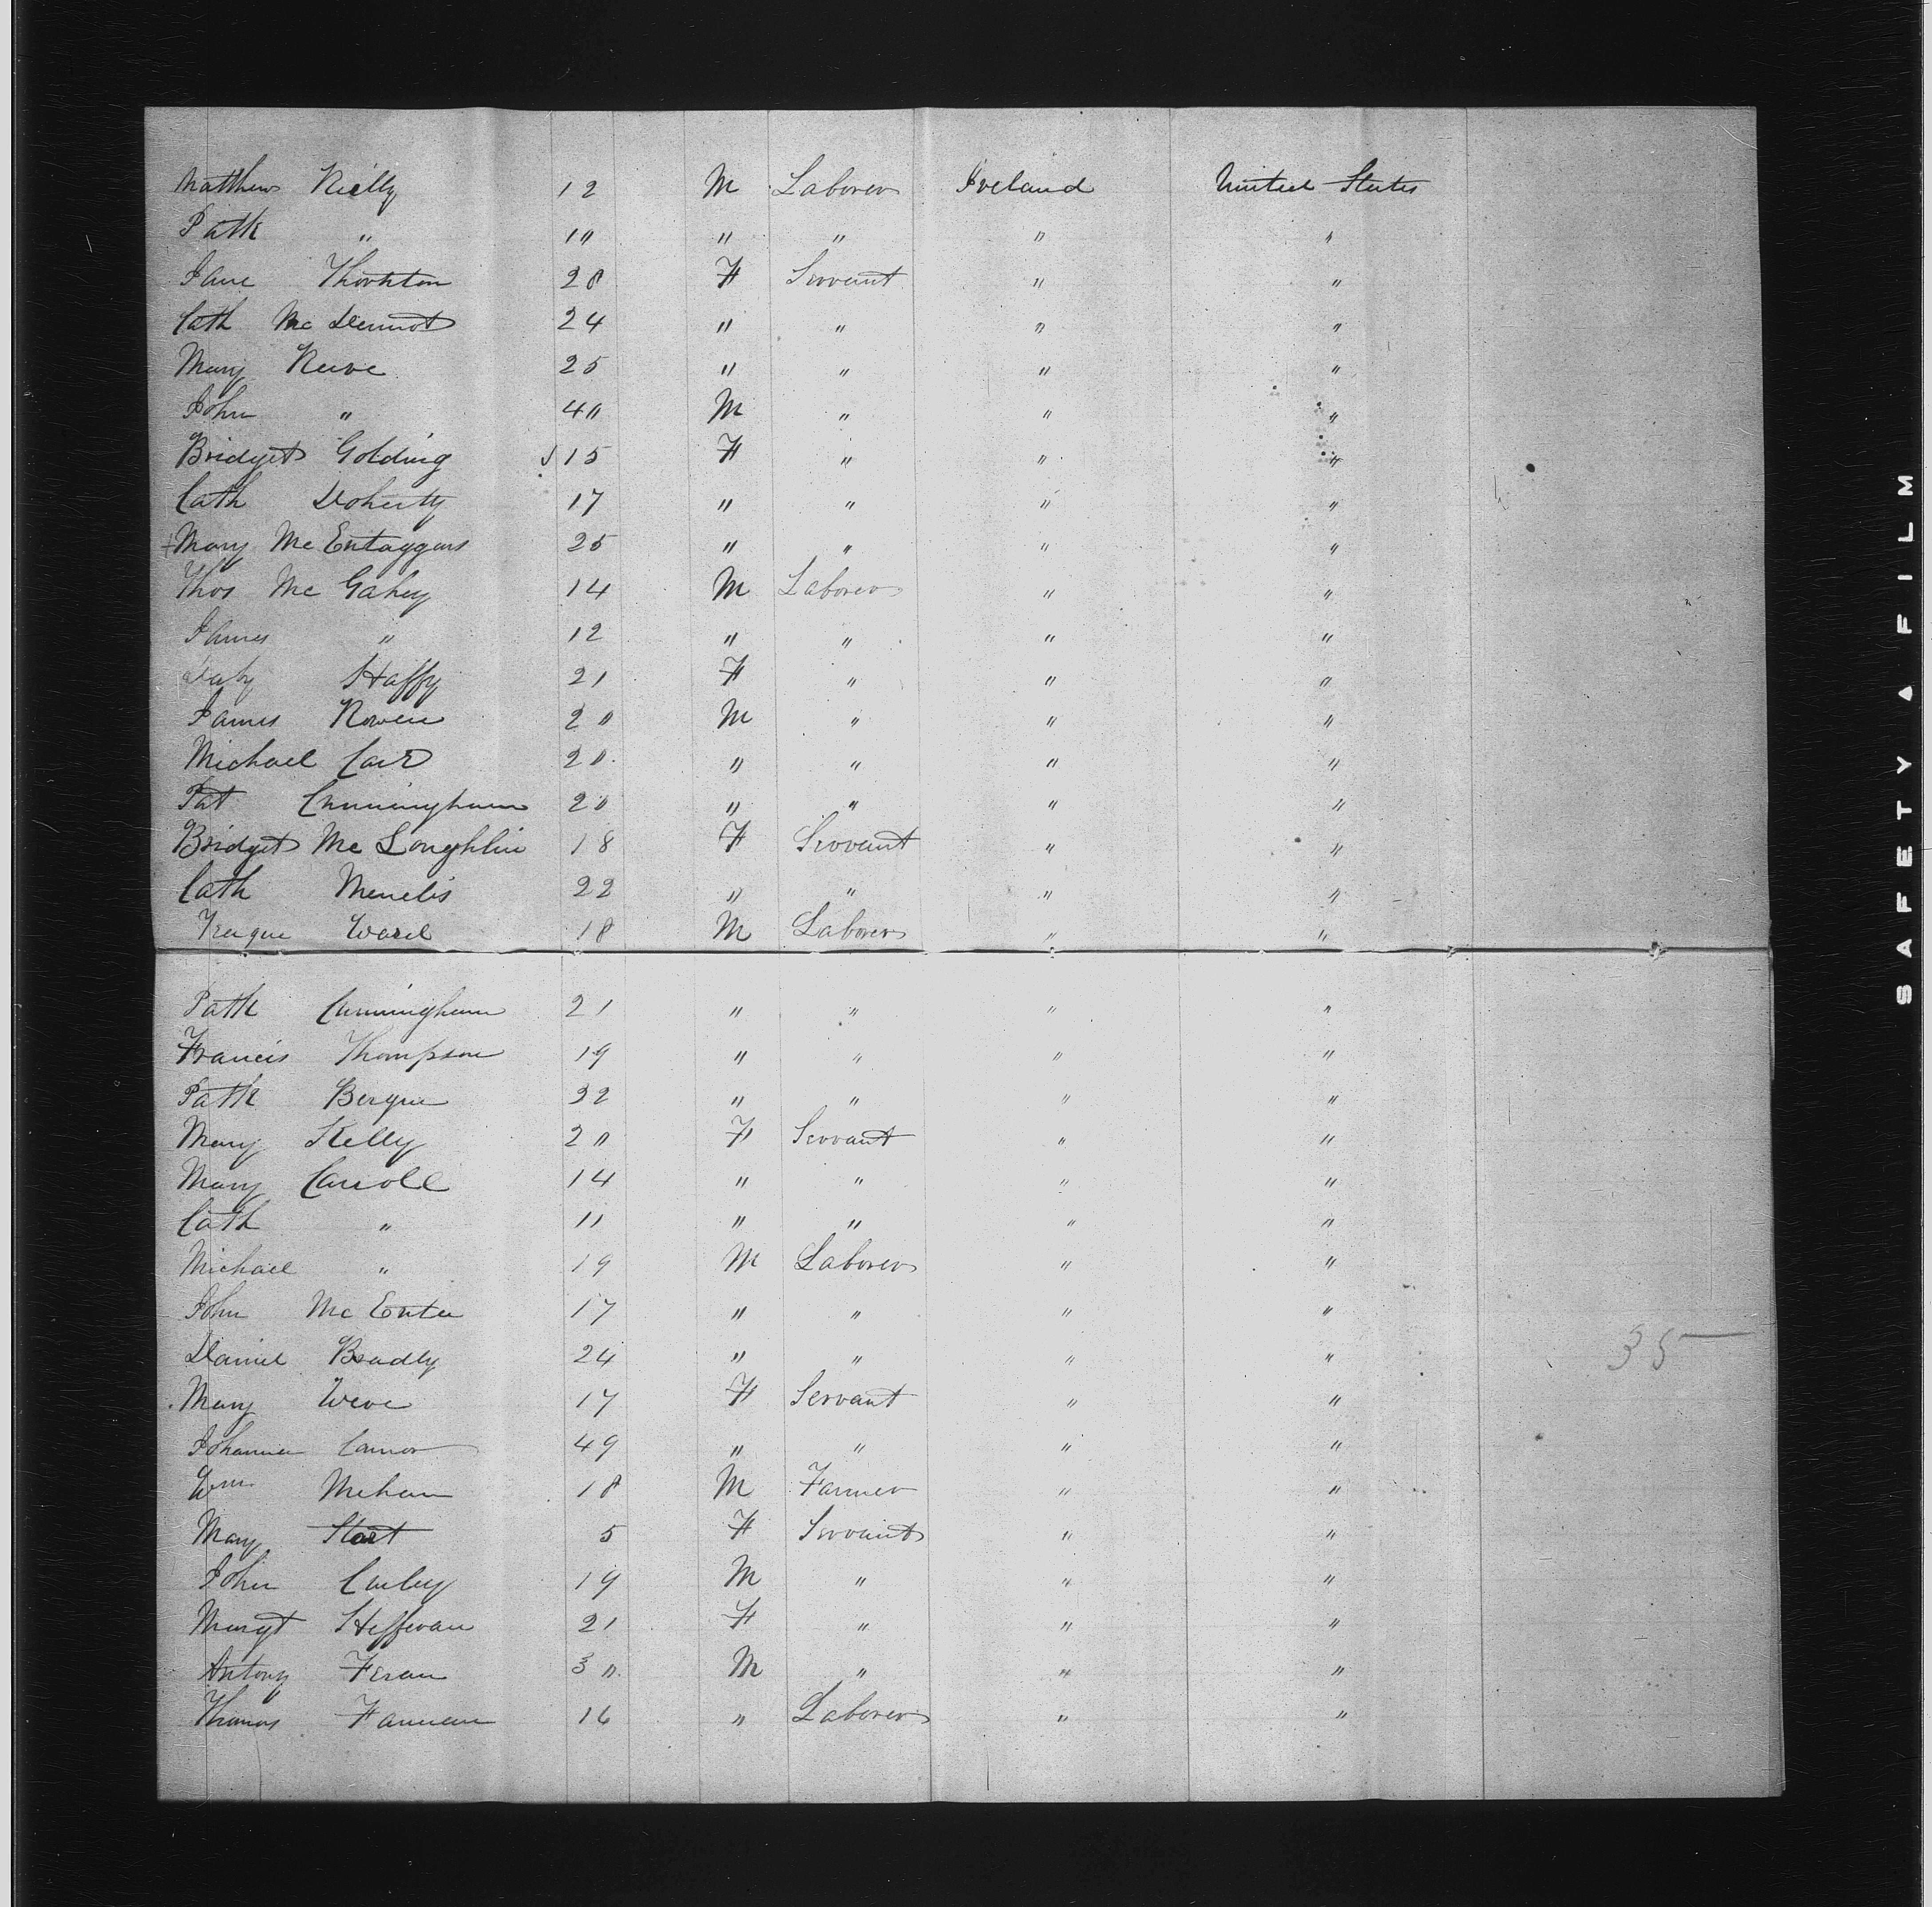 Matthew Reilly 12 M Laborer Ireland United States
Patk " 10 " " " "
Jane Thornton 20 F Servant " "
Cath McDermot 24 " " " "
Mary Reeve 25 " " " "
John " 40 M " " "
Bridget Golding 15 F " " "
Cath Doherty 17 " " " "
Mary McEntaggart 25 " " " "
Thos McGahey 14 M Laborer " "
James " 12 " " " "
Haffy 21 F " " "
James Rowen 20 M " " "
Michael Carr 20 " " " "
Pat Cunningham 20 " " " "
Bridget McLoughlin 18 F Servant " "
Cath Menelis 22 " " " "
Ward 18 M Laborer " "
Patk Cunningham 21 " " " "
Francis Thompson 19 " " " "
Patk Bergen 32 " " " "
Mary Kelly 20 F Servant " "
Mary Carroll 14 " " " "
Cath " 11 " " " "
Michael " 19 M Laborer " "
John McEntee 17 " " " "
Daniel Bradly 24 " " " "
35
Mary Weve 17 F Servant " "
Johanna Connor 49 " " " "
Wm Mehan 18 M Farmer " "
Mary Start 5 F Servant " "
John Curley 19 M " " "
Margt Heffernan 21 F " " "
Antony Feran 30 M " " "
Thomas Fannean 16 " Laborer " "
SAFETY FILM